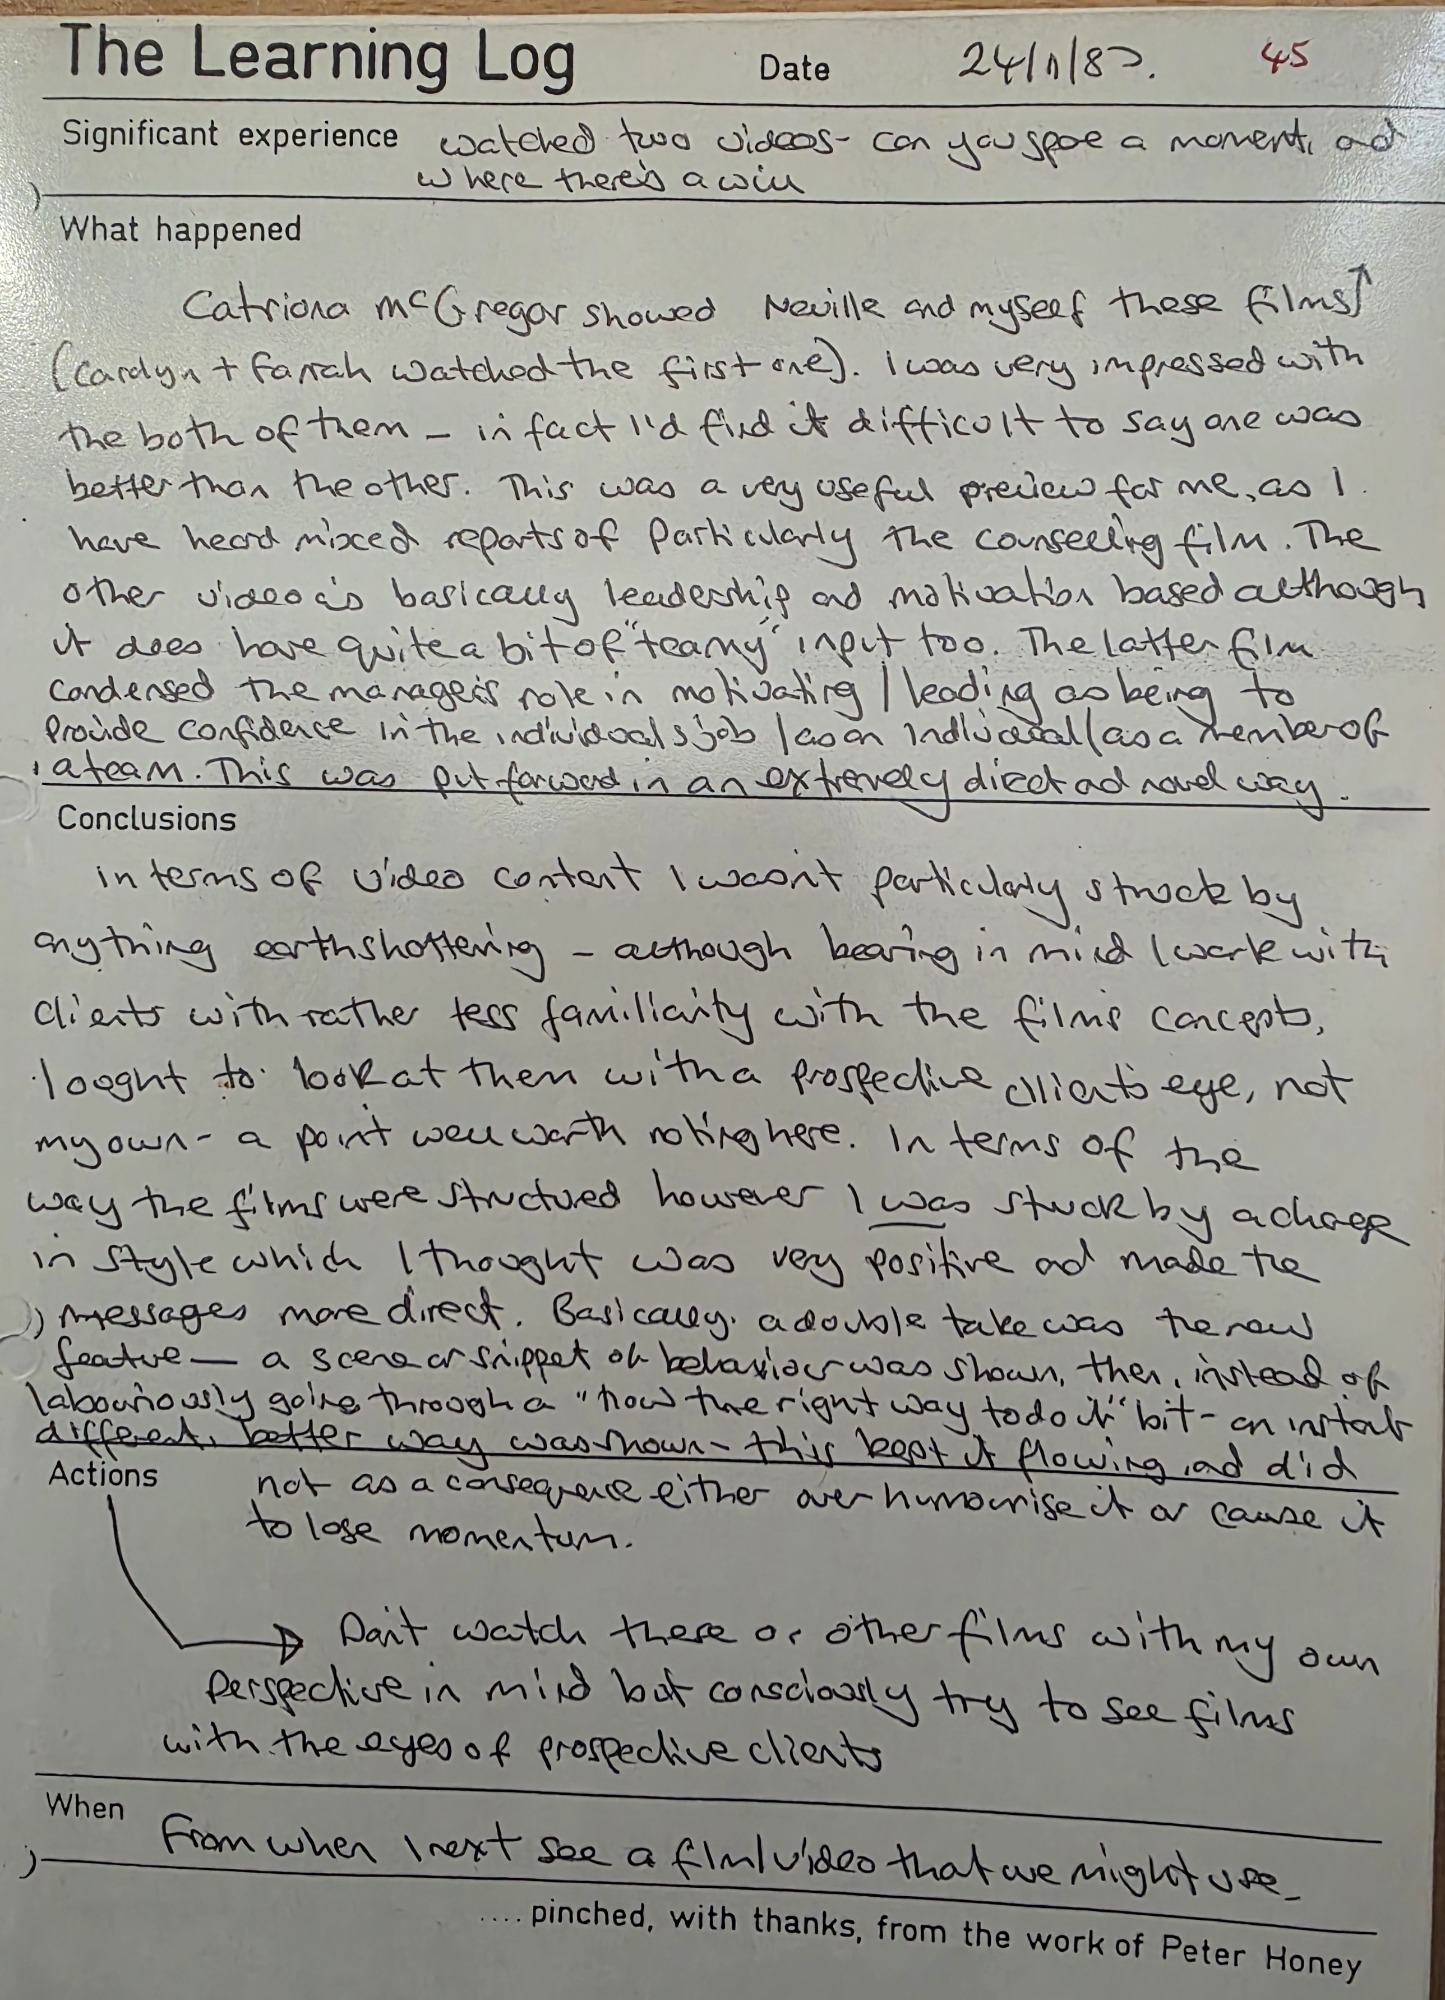 The Learning Log Date 24/11/87. 45
Significant experience watched two videos - can you spare a moment, and
where there's a will
What happened
Catriona McGregor showed Neville and myself these films
(Carolyn + Farrah watched the first one). I was very impressed with
the both of them - in fact I'd find it difficult to say one was
better than the other. This was a very useful preview for me, as I
have heard mixed reports of particularly the counselling film. The
other video is basically leadership and motivation based although
it does have quite a bit of "teamy" input too. The latter film
condensed the manager's role in motivating / leading as being to
provide confidence in the individual's job / as an individual / as a member of
a team. This was put forward in an extremely direct and novel way.
Conclusions
in terms of video content I wasn't particularly struck by
anything earthshattering - although bearing in mind I work with
clients with rather less familiarity with the films concepts,
I ought to look at them with a prospective client's eye, not
my own - a point well worth noting here. In terms of the
way the films were structured however I was struck by a change
in style which I thought was very positive and made the
messages more direct. Basically a double take was the new
feature - a scene or snippet of behaviour was shown, then, instead of
labouriously going through a "how the right way to do it" bit - an instant
different, better way was shown - this kept it flowing and did
Actions not as a consequence either over humourise it or cause it
to lose momentum.
Don't watch these or other films with my own
perspective in mind but consciously try to see films
with the eyes of prospective clients
When From when I next see a film/video that we might use.
.... pinched, with thanks, from the work of Peter Honey